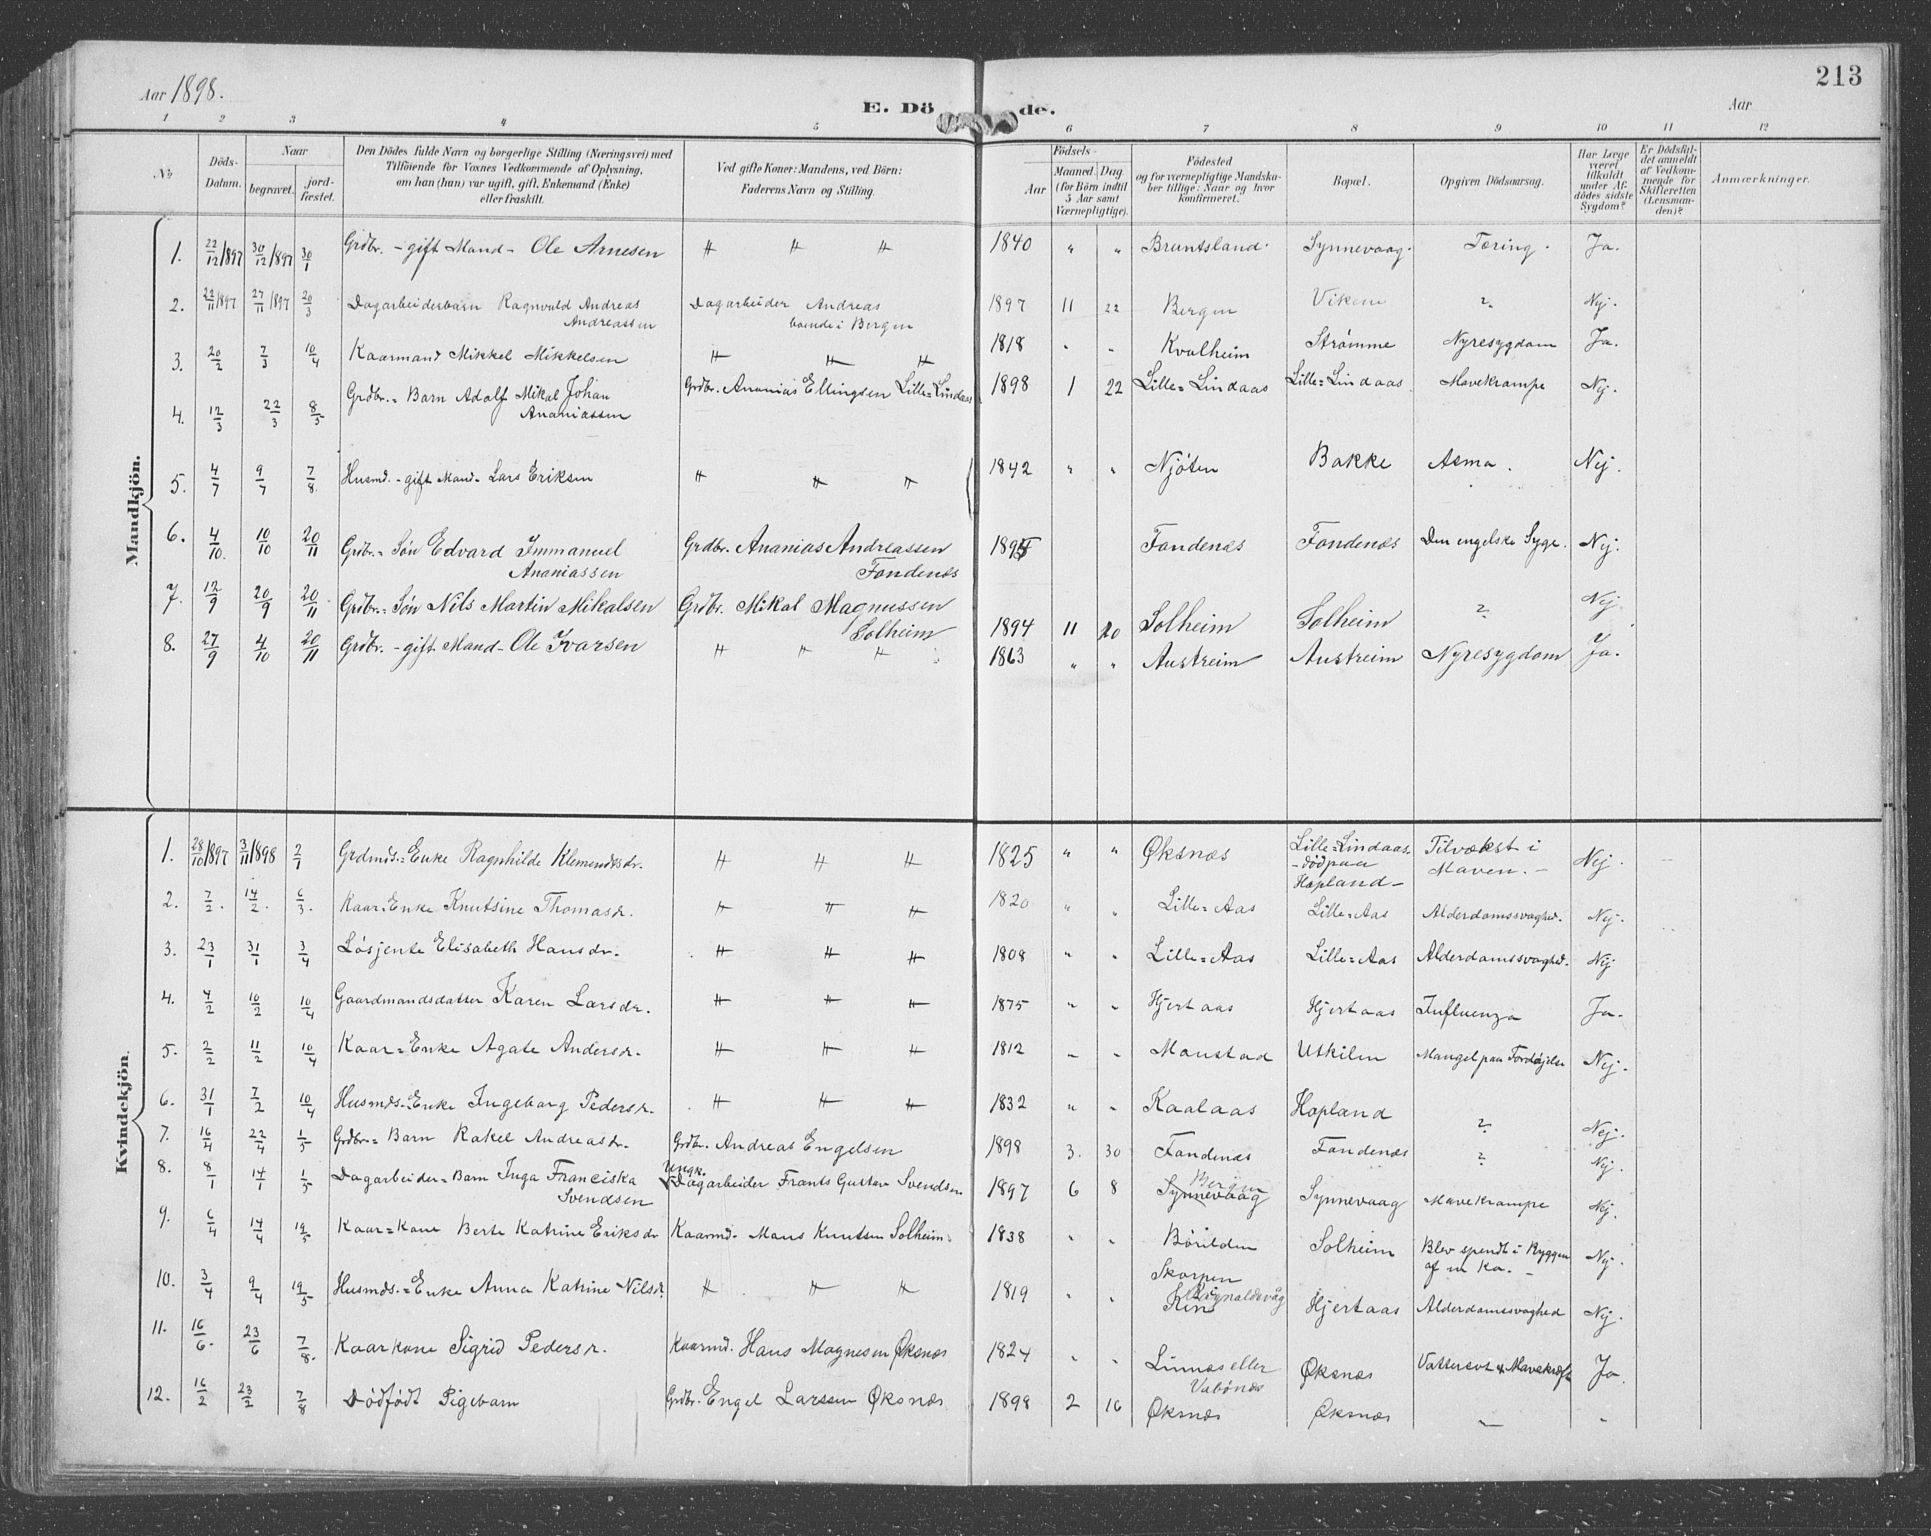 213
Aar 1898.
E. Dö de.
Aar
1 2 3 4 5 6 7 8 9 10 11 12
No
Döds-Datum.
Naar
begravet.
jord-fæstet.
Den Dödes fulde Navn og borgerlige Stilling (Næringsvei) med
Tilföiende for Voxnes Vedkommende af Oplysning,
om han (hun) var ugift, gift, Enkemand (Enke)
eller fraskilt.
Ved gifte Koner: Mandens, ved Börn:
Faderens Navn og Stilling.
Födsels-
Aar
Maaned. Dag
(for Börn indtil
5 Aar samt
Værnepligtige).
Födested
og for værnepligtige Mandska-
ber tillige: Naar og hvor
konfirmeret.
Bopæl.
Opgiven Dödsaarsag.
Har Læge
været
tilkaldt
under Af-
dödes sidste
Sygdom?
Er Dödsfal-
det anmeldt
af Vedkom-
mende for
Skifteretten
(Lensman-
den)?
Anmærkninger.
Mandkjön.
1. 22/12/1897 30/12/1897 30/1 Grdbr. - gift Mand - Ole Arnesen " " " 1840 " " Bruntsland. Synnevaag. Tæring. Ja.
2. 22/11/1897 27/11/1897 20/3 Dagarbeiderbarn Ragnvald Andreas Dagarbeider Andreas 1897 11 22 Bergen Viken ? Nej.
Andreassen boende i Bergen
3. 20/2 7/3 10/4 Kaarmand Mikkel Mikkelsen " " " 1818 " " Kvalheim Strømme Nyresygdom Ja.
4. 12/3 22/3 8/5 Grdbr.= Barn Adolf Mikal Johan Grdbr. Ananias Ellingsen Lille=Lindaas 1898 1 22 Lille=Lindaas Lille=Lindaas Mavekrampe Nej.
Ananiassen
5. 4/7 9/7 7/8. Husmd. - gift Mand - Lars Eriksen " " " 1842 " " Njøten Bakke Asma. Nej.
6. 4/10. 10/10 20/11 Grdbr.= Søn Edvard Immanuel Grdbr. Ananias Andreassen 1895 Fondenæs Fondenæs Den engelske Syge. Nej.
Ananiassen Fondenæs
7. 12/9 20/9 20/11 Grdbr.= Søn Nils Martin Mikalsen Grdbr. Mikal Magnussen 1894 11 20 Solheim Solheim ? Nej
Solheim
8. 27/9 4/10 20/11 Grdbr. - gift Mand - Ole Ivarsen " " " 1863 " " Austreim Austreim Nyresygdom Ja.
Kvindekjön.
1. 28/10/1897 3/11/1898 2/1 Grdmds.= Enke Ragnhilde Klemendtsdr. " " " 1825 " " Øksnæs Lille=Lindaas. Tilvækst i Nej.
-død paa Maven. -
Hopland -
2. 7/2. 14/2. 6/3. Kaar=Enke Knutsine Thomasdr. " " " 1820 " " Lille=Aas Lille=Aas Alderdomssvaghed. Nej.
3. 23/1 31/1 3/4 Løsjente Elisabeth Hansdr. " " " 1808 " " Lille=Aas Lille=Aas Alderdomssvaghed. Nej
4. 4/2 10/2 10/4 Gaardmandsdatter Karen Larsdr. " " " 1875 " " Hjertaas Hjertaas Influenza Ja.
5. 2/2 11/2 10/4 Kaar=Enke Agate Andersdr. " " " 1812 " " Monstad Utkilen Mangel paa Fordøjelse Nej.
6. 31/1 7/2 10/4 Husmds.=Enke Ingeborg Pedersdr. " " " 1832 " " Kaalaas Hopland ? Nej.
7. 16/4 22/4 1/5 Grdbr.= Barn Rakel Andreasdr. Grdbr. Andreas Engelsen 1898 3. 30 Fondenæs Fondenæs ? Nej.
8. 8/1 14/1 1/5 Dagarbeider=Barn Inga Franciska Ungk. Dagarbeider Frants Gustav Svendsen 1897 6 8 Synnevaag Bergen Synnevaag Mavekrampe Nej.
Svendsen
9. 6/4 14/4 19/5 Kaar=Kone Berte Katrine Eriksdr Kaarmd. Mons Knutsen Solheim. 1838 " " Børilden Solheim Blev spendt i Ryggen Nej.
af en Ko. -
10. 3/4 9/4 19/5 Husmds.=Enke Anna Katrine Nilsdr. " " " 1819 " " Skorpen Hjertaas Alderdomssvaghed Nej.
Kin
11. 16/6. 23/6 7/8. Kaarkone Sigrid Pedersdr. Kaarmd. Hans Mognesen Øksnæs 1824 " " Linnæs eller Øksnæs Vattersot & Ja.
12. 16/2 23/2 7/8 Dødfødt Pigebarn Grdbr. Engel Larssen Øksnæs 1898 2 16 Øksnæs Øksnæs — "